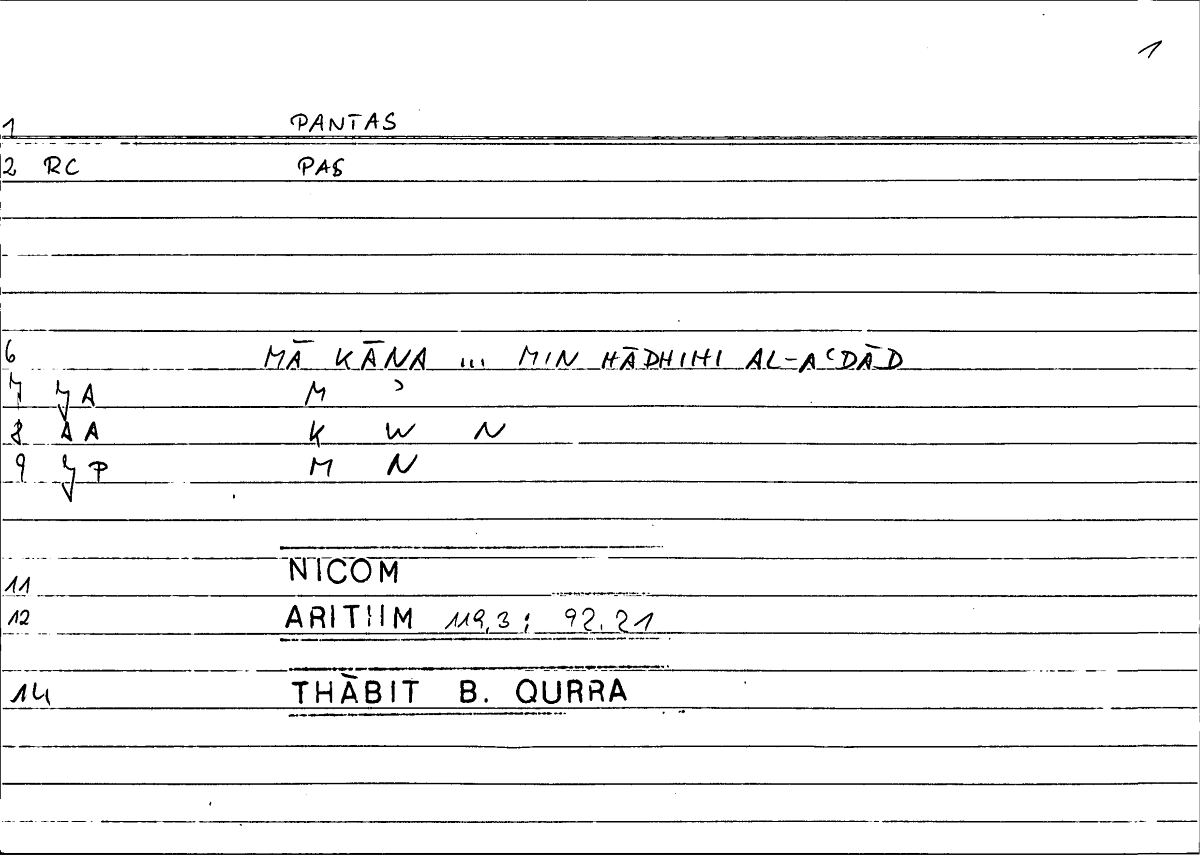 1
1 PANTAS
2 RC PAS
6 MĀ KĀNA ... MIN HĀDHIHI AL-AʿDĀD
7 A M ʾ
8 AA K W N
9 P M N
11 NICOM
12 ARITHM 119,3; 92.21
14 THĀBIT B. QURRA